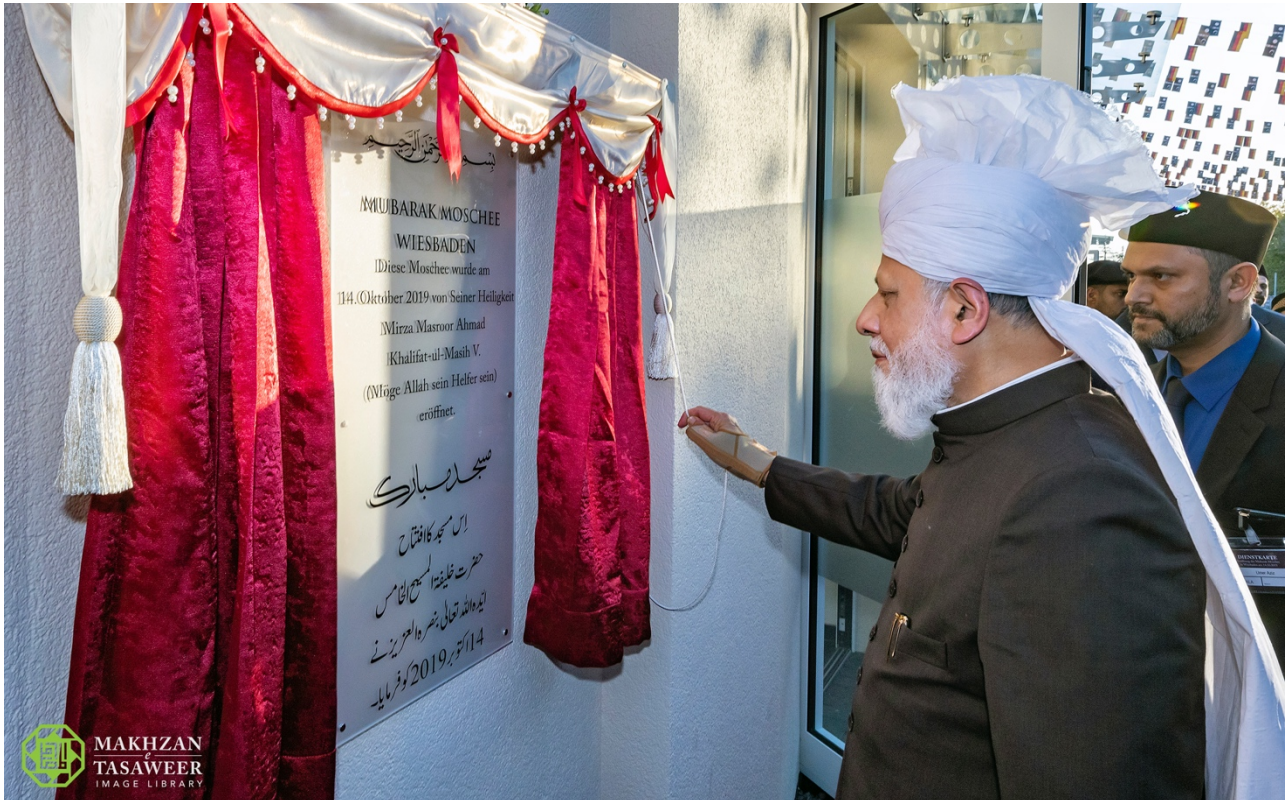 بسم اللہ الرحمٰن الرحیم
MUBARAK MOSCHEE
WIESBADEN
Diese Moschee wurde am
14. Oktober 2019 von Seiner Heiligkeit
Mirza Masroor Ahmad
Khalifat-ul-Masih V.
(Möge Allah sein Helfer sein)
eröffnet.
مسجد مبارک
اِس مسجد کا افتتاح
حضرت خلیفۃ المسیح الخامس
ایّدہ اللہ تعالیٰ بنصرہ العزیز نے
14 اکتوبر 2019 کو فرمایا۔
DIENSTKARTE
MAKHZAN
e
TASAWEER
IMAGE LIBRARY